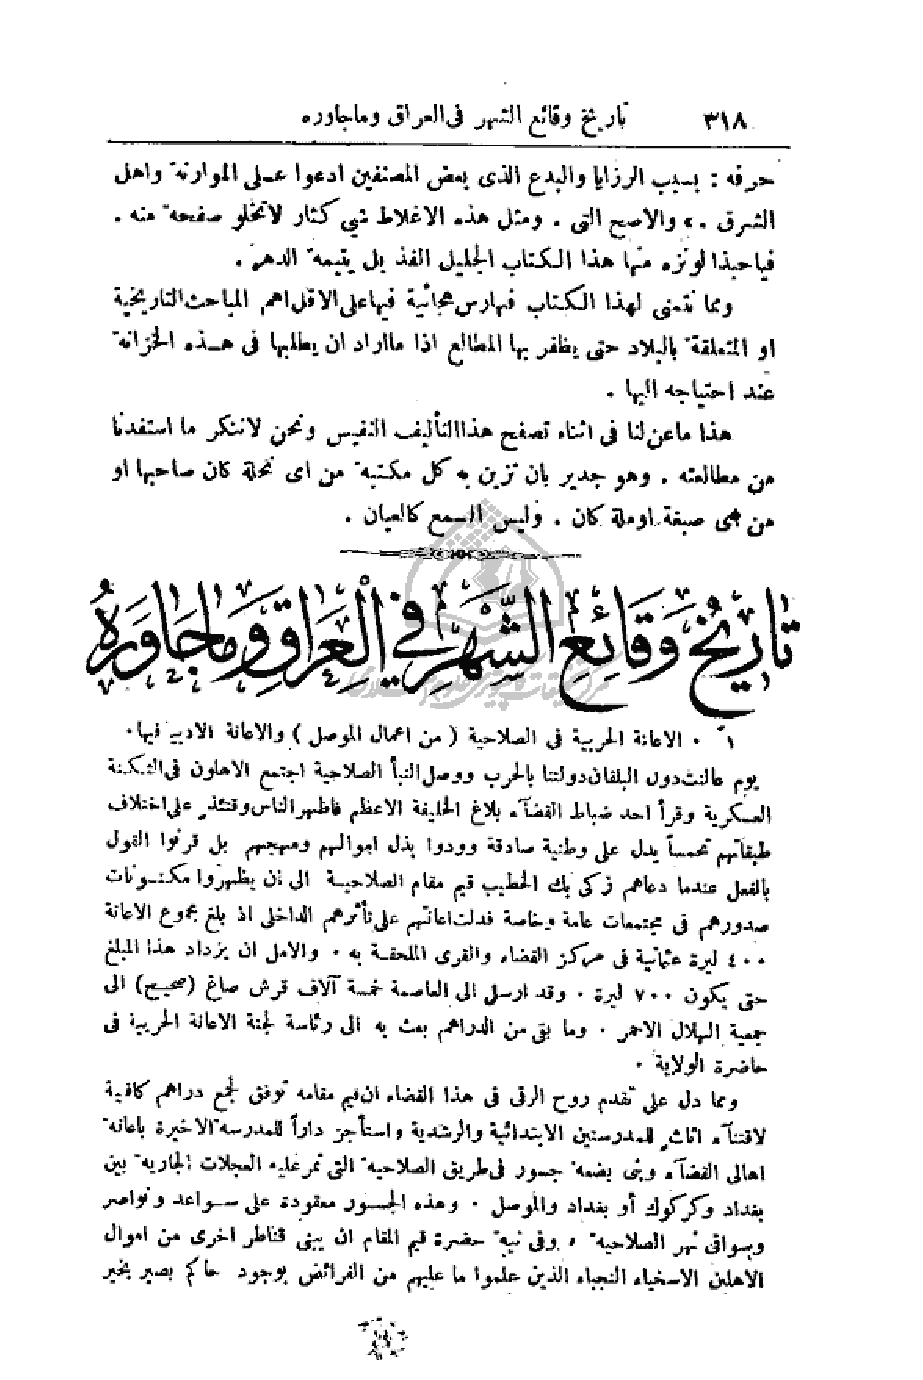 ٣١٨ تاريخ وقائع الشهر فى العراق وماجاوره
حرفه : بسبب الرزايا والبدع الذى بعض المصنفين ادعوا عـلى الموارنة واهل
الشرق . » والاصح التى . ومثل هذه الاغلاط شي كثار لا تخلو صفحة منه .
فياحبذا لو نزه منها هذا الكتاب الجليل الفذ بل يتيمة الدهر .
ومما نتمنى لهذا الكتاب فهارس هجائية فيها على الاقل اهم المباحث التاريخية
او المتعلقة بالبلاد حتى يظفر بها المطالع اذا ما اراد ان يطلبها فى هـذه الخزانة
عند احتياجه اليها .
هذا ما عن لنا فى اثناء تصفح هذا التأليف النفيس ونحن لا ننكر ما استفدنا
من مطالعته . وهو جدير بان تزين به كل مكتبة من اى نحلة كان صاحبها او
من اى صبغة او ملة كان . وليس السمع كالعيان .
تاريخ وقائع الشهر في العراق وما جاوره
١ . الاعانة الحربية فى الصلاحية ( من اعمال الموصل ) والاعانة الادبية فيها .
يوم عالنت دول البلقان دولتنا بالحرب ووصل النبأ الصلاحية اجتمع الاهلون فى الثكنة
العسكرية وقرأ احد ضباط القضآء بلاغ الخليفة الاعظم فاظهر الناس وقتئذ على اختلاف
طبقاتهم تحمساً يدل على وطنية صادقة وودوا بذل اموالهم ومهجهم بل قرنوا القول
بالفعل عندما دعاهم زكى بك الخطيب قيم مقام الصلاحيـة الى ان يظهروا مكنـونات
صدورهم فى مجتمعات عامة وخاصة فدلت اعانتهم على تأثرهم الداخلى اذ بلغ مجموع الاعانة
٤٠٠ ليرة عثمانية فى مركز القضاء والقرى الملحقة به . والامل ان يزداد هذا المبلغ
حتى يكون ٧٠٠ ليرة . وقد ارسل الى العاصمة خمسة آلاف قرش صاغ (صحيح) الى
جمعية الهلال الاحمر . وما بقى من الدراهم بعث به الى رئاسة لجنة الاعانة الحربية فى
حاضرة الولاية .
ومما دل على تقدم روح الرقى فى هذا القضاء ان قيم مقامه توفق لجمع دراهم كافية
لاقتنآء اثاث للمدرستين الابتدائية والرشدية واستأجر داراً للمدرسة الاخيرة باعانة
اهالى القضآء وبنى بضعة جسور فى طريق الصلاحية التى تمر عليه العجلات الجارية بين
بغداد وكركوك أو بغداد والموصل . وهذه الجسـور معقودة على سـواعد ونواصر
وسواقى نهر الصلاحية . وفى نية حضرة قيم المقام ان يبنى قناطر اخرى من اموال
الاهلين الاسخياء النجباء الذين علموا ما عليهم من الفرائض بوجود حاكم بصير يخبر